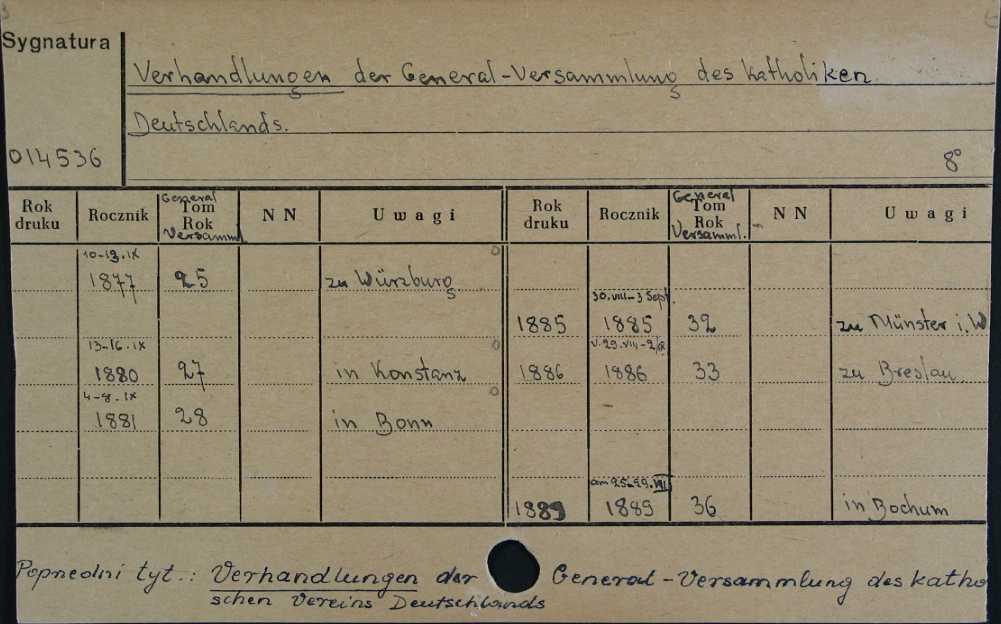 Sygnatura
Verhandlungen der General-Versammlung des Katholiken
Deutschlands.
014536
8°
Rok druku Rocznik General Tom Rok Versamml. NN Uwagi Rok druku Rocznik General Tom Rok Versamml. NN Uwagi
10-13.IX
1877 25 zu Würzburg
30.VIII-3 Sept.
1885 1885 32 zu Münster i. W
13-16.IX
1880 27 in Konstanz
v. 29.VIII-2/IX
1886 1886 33 zu Breslau.
4-8.IX
1881 28 in Bonn
am 25-29.VIII
1889 1889 36 in Bochum
Poprzedni tyt.: Verhandlungen der General-Versammlung des katho
schen Vereins Deutschlands